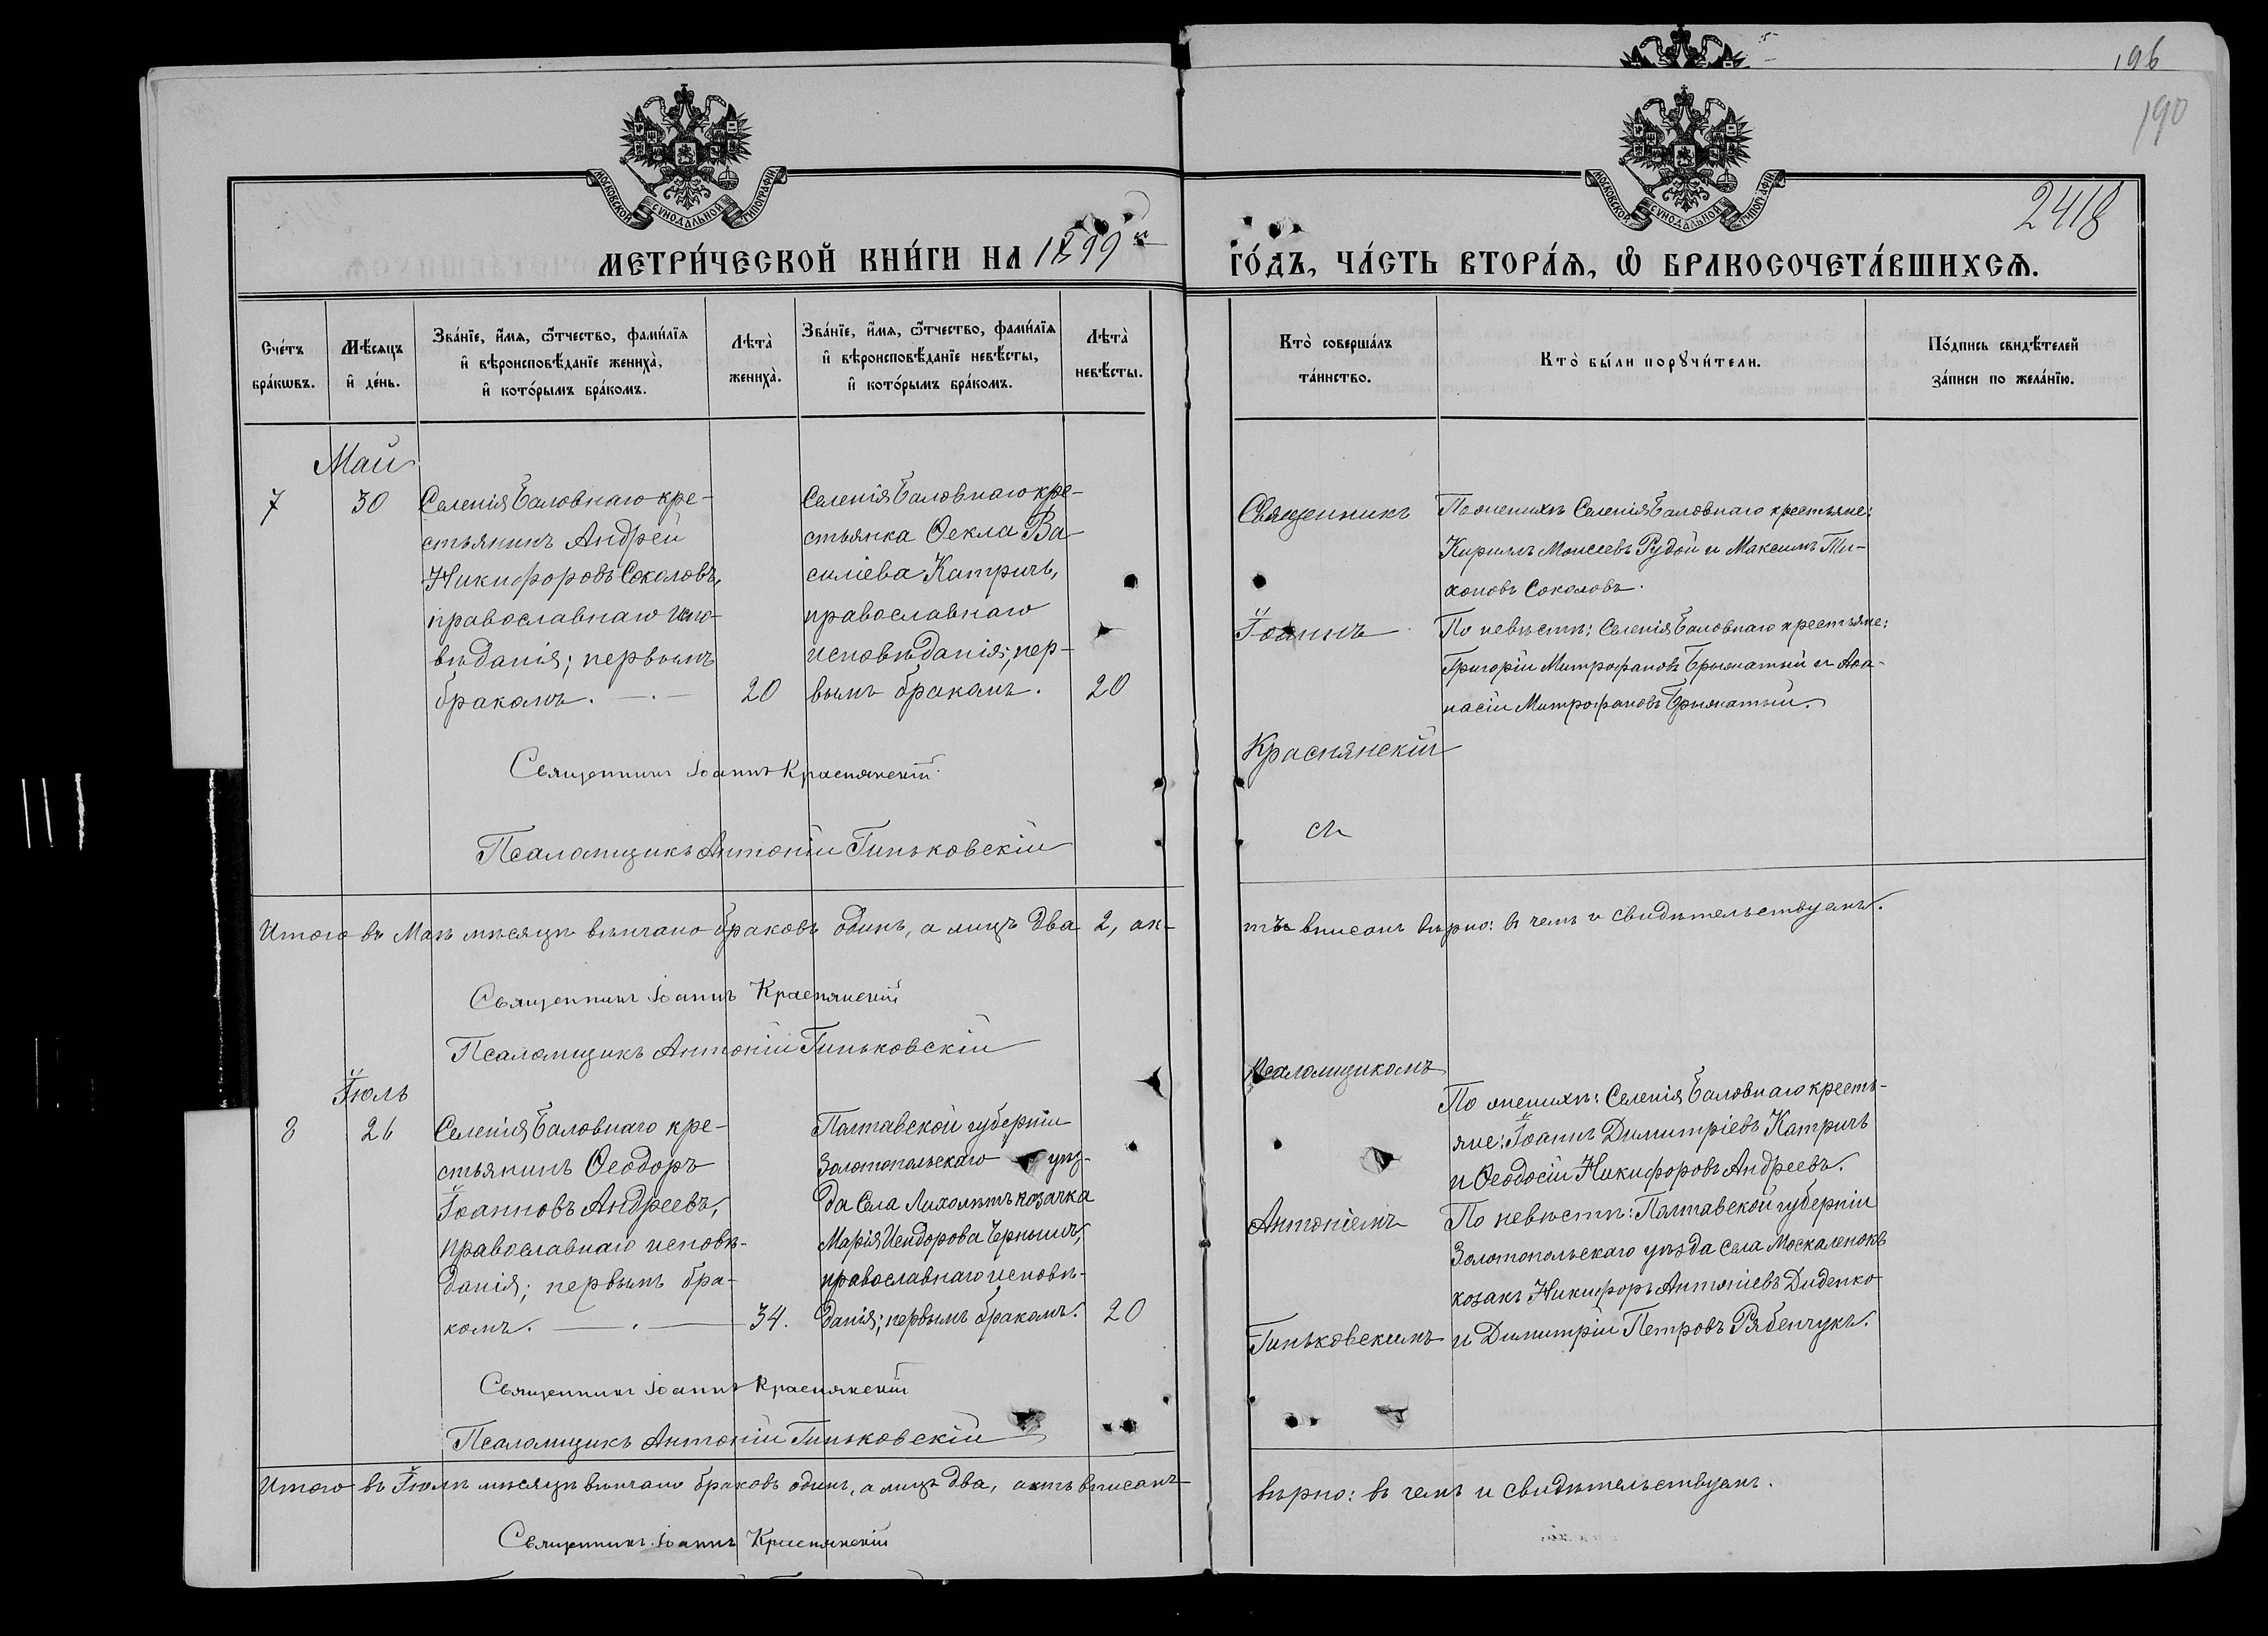 196
190
2418
МОСКОВСКОЙ СУНОДАЛЬНОЙ ТИПОГРАФІИ.
МОСКОВСКОЙ СУНОДАЛЬНОЙ ТИПОГРАФІИ.
МЕТРИ́ЧЕСКОЙ КНИ́ГИ НА 1899й
ГО́ДЪ, ЧА́СТЬ ВТОРА́Ѧ, Ѡ҆ БРАКОСОЧЕТА́ВШИХСѦ.
Сче́тъ
бра́кѡвъ.
Мѣ́сяцъ
и҆ де́нь.
Зва́нїе, и҆́мѧ, ѻ҆́тчество, фамѝлїѧ
и҆ вѣроисповѣ́данїе жениха̀,
и҆ кото́рымъ бра́комъ.
Лѣта̀
жениха̀.
Зва́нїе, и҆́мѧ, ѻ҆́тчество, фамѝлїѧ
и҆ вѣроисповѣ́данїе невѣ́сты,
и҆ кото́рымъ бра́комъ.
Лѣта̀
невѣ́сты.
Кто̀ соверша́лъ
та́инство.
Кто̀ бы́ли порꙋчи́тели.
По́дпись свидѣ́телей
за́писи по жела́нїю.
Май
7
30
Селенія Баловнаго кре-
стьянинъ Андрей
Никифоровъ Соколовъ,
православнаго испо-
вѣданія; первымъ
бракомъ.
20
Селенія Баловнаго кре-
стьянка Ѳекла Ва-
силіева Катричъ,
православнаго
исповѣданія; пер-
вымъ бракомъ.
20
Священникъ
Іоаннъ
Краснянскій
съ
По женихѣ Селенія Баловнаго крестьяне:
Кириллъ Моисеевъ Рудой и Максимъ Ти-
хоновъ Соколовъ.
По невѣстѣ: Селенія Баловнаго крестьяне:
Григорій Митрофановъ и Аѳа-
насій Митрофановъ
Священникъ Іоаннъ Краснянскій
Псаломщикъ Антоній Гиньковскій
Итого въ Маѣ мѣсяцѣ вѣнчано браковъ одинъ, а лицъ два 2, ак-
тъ вписанъ вѣрно: въ чемъ и свидѣтельствуемъ.
Священникъ Іоаннъ Краснянскій
Псаломщикъ Антоній Гиньковскій
Іюль
8
26
Селенія Баловнаго кре-
стьянинъ Ѳеодоръ
Іоанновъ Андреевъ,
православнаго исповѣ-
данія; первымъ бра-
комъ.
34.
Полтавской губерніи
Золотопольскаго уѣз-
да Села Лихолѣтъ козачка
Марія Исидорова Чернышъ,
православнаго исповѣ-
данія; первымъ бракомъ.
20
Псаломщикомъ
Антоніемъ
Гиньковскимъ
По женихѣ: Селенія Баловнаго кресть-
яне: Іоаннъ Димитріевъ Катричъ
и Ѳеодосій Никифоровъ Андреевъ.
По невѣстѣ: Полтавской губерніи
Золотопольскаго уѣзда Села Москаленокъ
козакъ Никифоръ Антоніевъ Диденко
и Димитрій Петровъ Рябенчукъ.
Священникъ Іоаннъ Краснянскій
Псаломщикъ Антоній Гиньковскій
Итого въ Іюлѣ мѣсяцѣ вѣнчано браковъ одинъ, а лицъ два, актъ вписанъ
вѣрно: въ чемъ и свидѣтельствуемъ.
Священникъ Іоаннъ Краснянскій